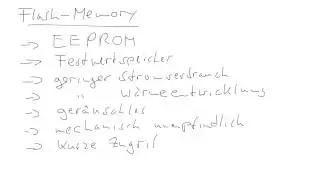 Flash-Memory
→ EEPROM
→ Festwertspeicher
→ geringer Stromverbrauch
→ " Wärmeentwicklung
→ geräuschlos
→ mechanisch unempfindlich
→ kurze Zugrif